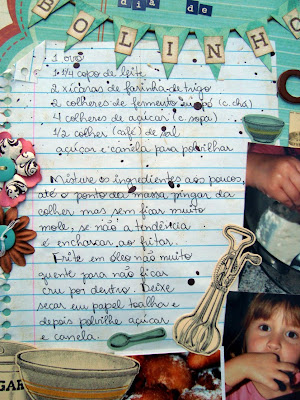 dia de
BOLINHO
1 ovo
1 1/4 copo de leite
2 xícaras de farinha de trigo
2 colheres de fermento em pó (c. chá)
4 colheres de açúcar (c. sopa)
1/2 colher (café) de sal
açúcar e canela para polvilhar
Misture os ingredientes aos poucos,
até o ponto da massa pingar da
colher mas sem ficar muito
mole, se não a tendência
é encharcar ao fritar.
Frite em óleo não muito
quente para não ficar
cru por dentro. Deixe
secar em papel toalha e
depois polvilhe açúcar
e canela.
GAR